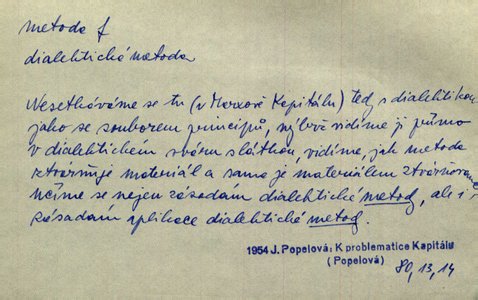 metoda f
dialektická metoda
Nesetkáváme se tu (v Marxově Kapitálu) tedy s dialektikou
jako se souborem principů, nýbrž vidíme ji přímo
v dialektickém svém s látkou, vidíme, jak metoda
ztvárňuje materiál a sama je materiálem ztvárňována
učíme se nejen zásadám dialektické metody, ale i
zásadám aplikace dialektické metody.
1954 J. Popelová: K problematice Kapitálu
(Popelová)
80, 13, 14